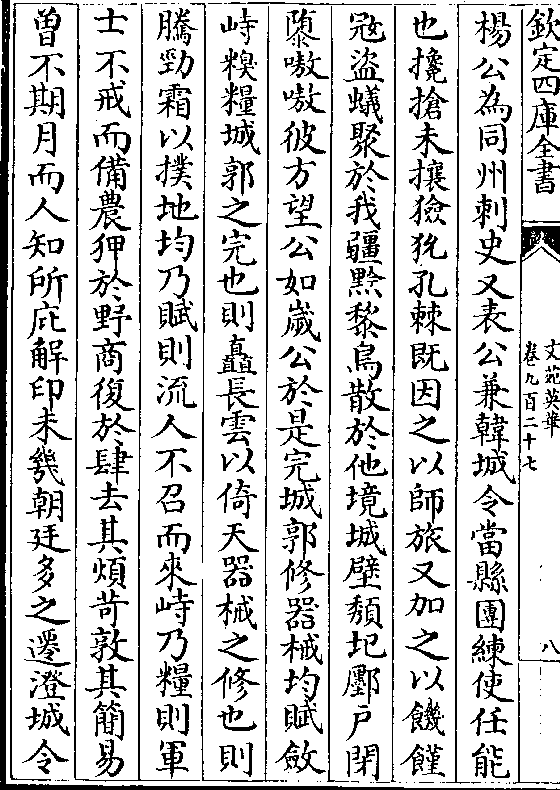 欽定四庫全書
文苑英華
卷九百二十七
八
楊公為同州刺史又表公兼韓城令當縣團練使任能
也攙搶未攘獫狁孔棘既因之以師旅又加之以饑饉
冦盜蟻聚於我疆黔黎鳥散於他境城壁頽圮鄽户閉
隳嗷嗷彼方望公如嵗公於是完城郭修器械均賦斂
峙糗糧城郭之完也則矗長雲以倚天器械之修也則
騰勁霜以撲地均乃賦則流人不召而來峙乃糧則軍
士不戒而備農狎於野商復於肆去其煩苛敦其簡易
曽不期月而人知所庇解印未幾朝廷多之遷澄城令